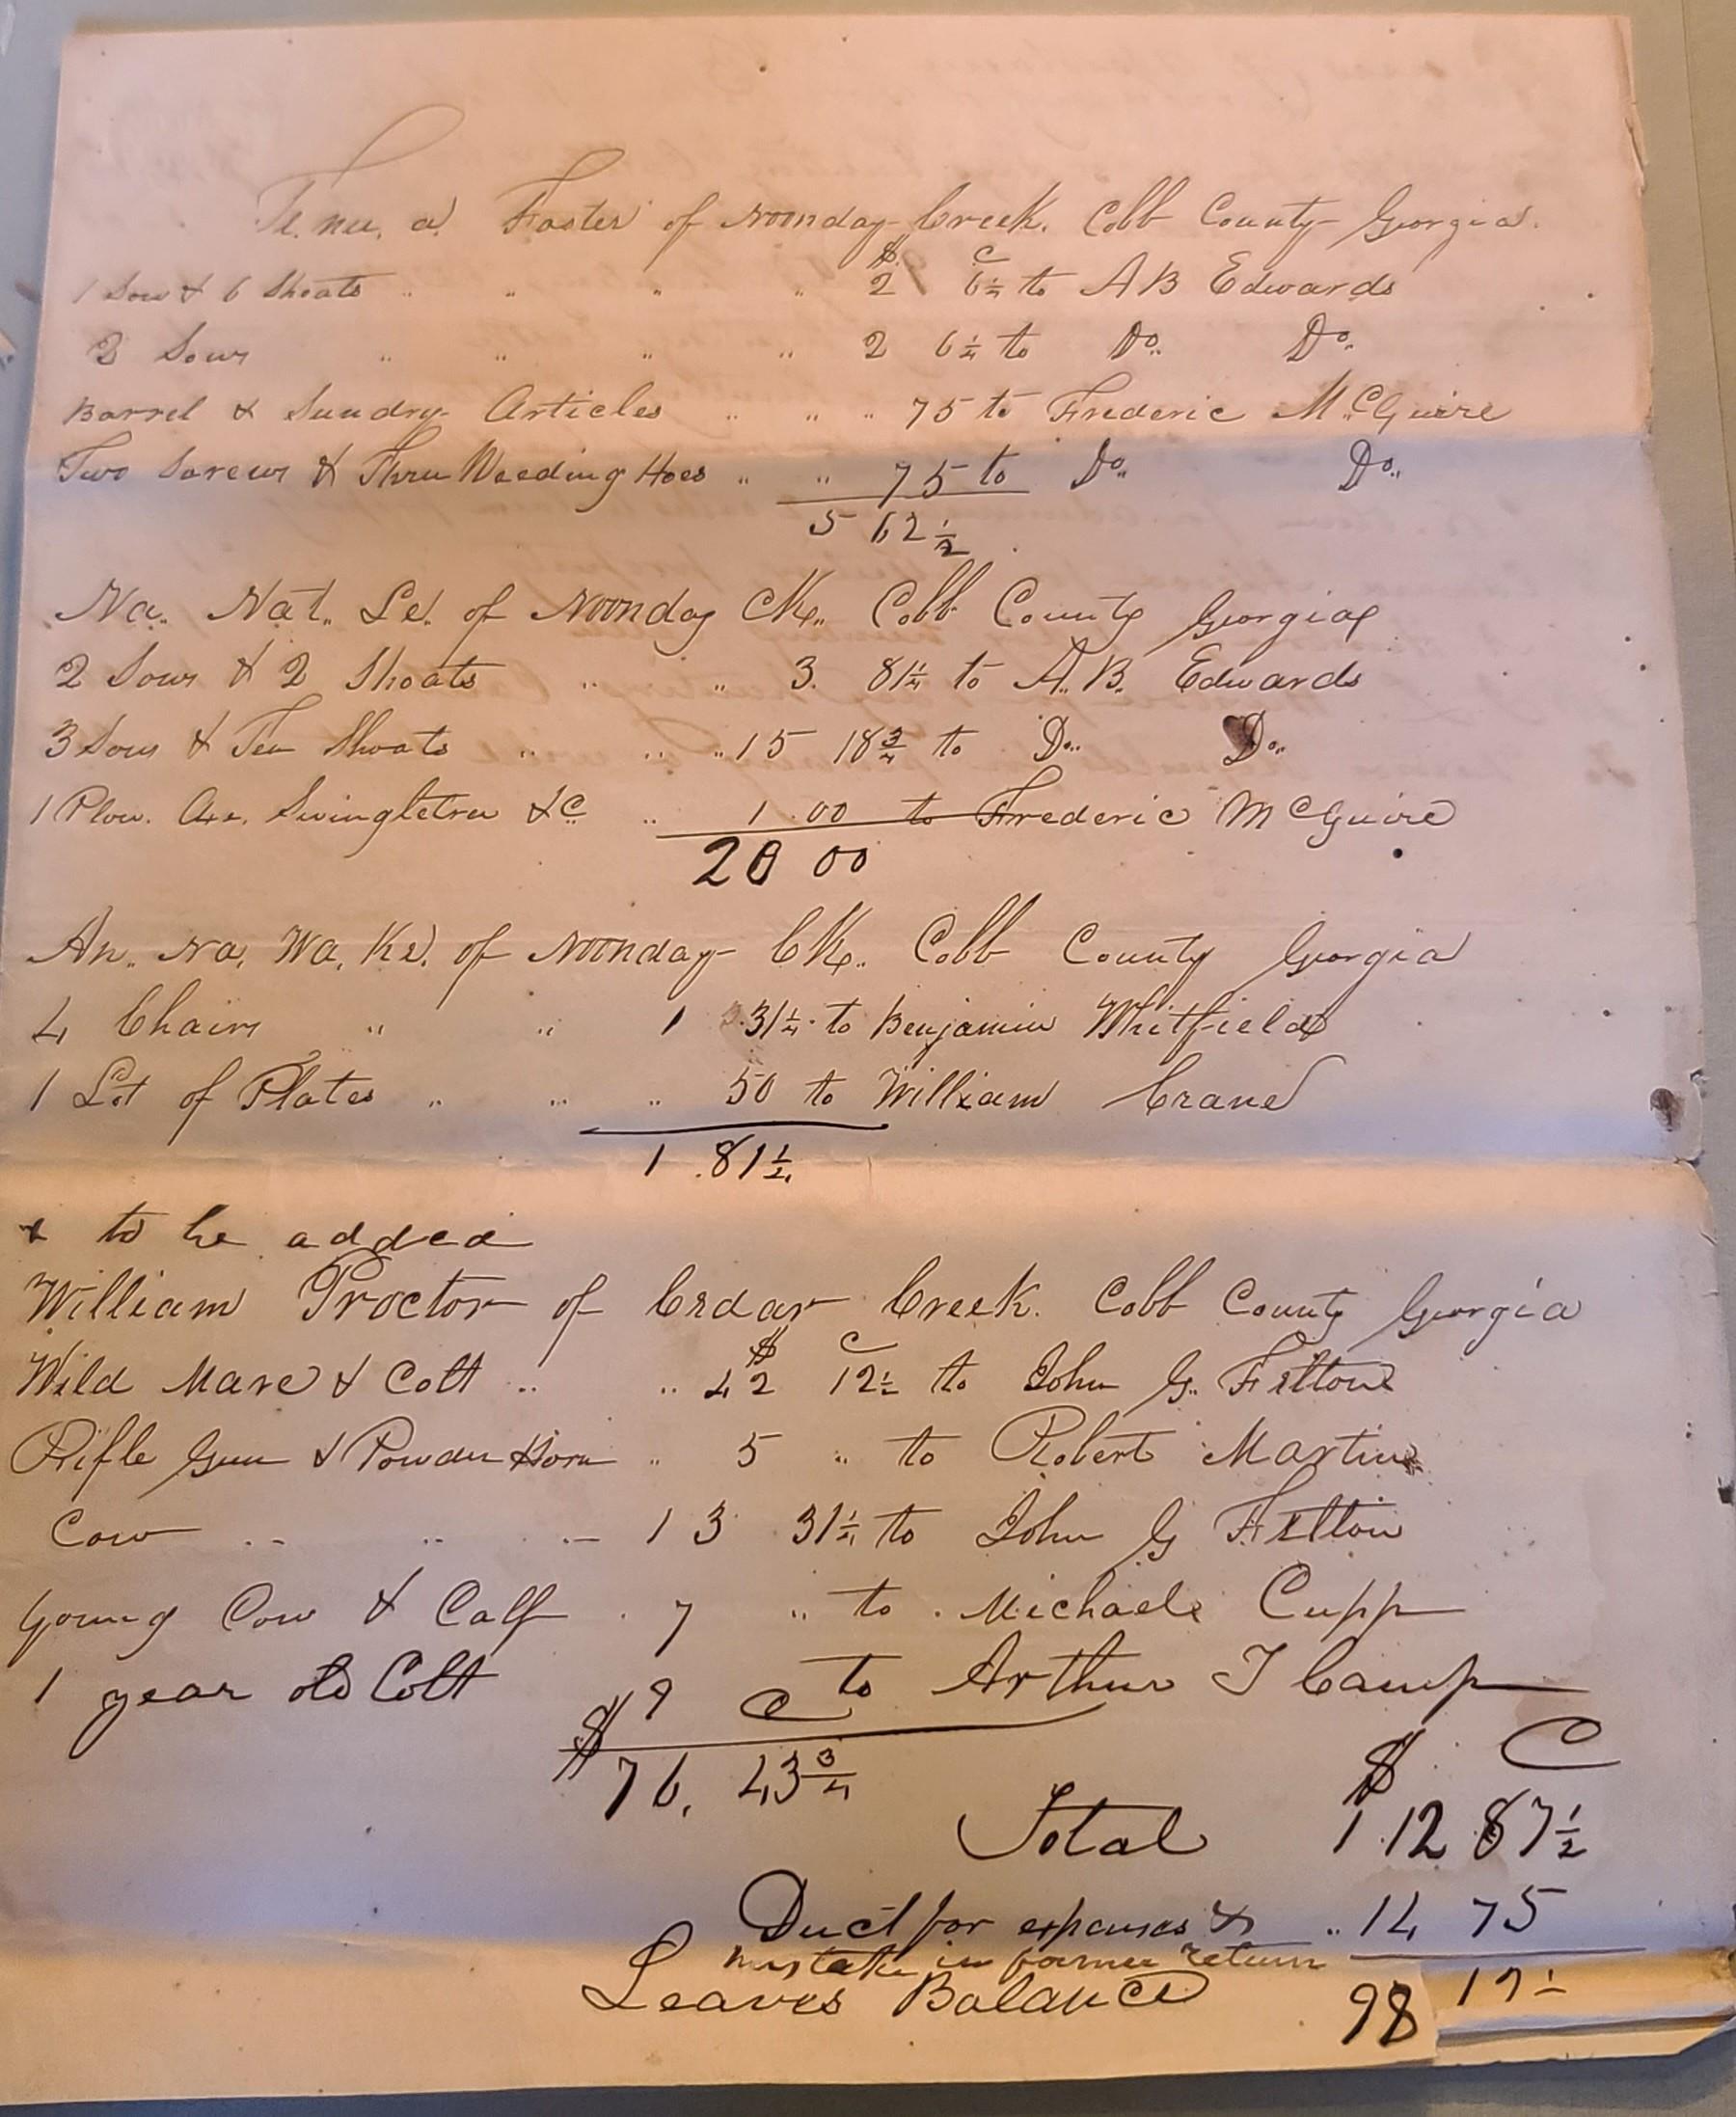 Te. nu. a. Foster of Noonday Creek. Cobb County Georgia.
$ C
1 Sow & 6 Shoats " " " " 2 6¼ to A B Edwards
2 Sows " " " " 2 6¼ to Do. Do.
Barrel & Sundry Articles " " " 75 to Frederic McGuire
Two Screws & Three Weeding Hoes " " 75 to Do. Do.
5 62½
Na. Nat. Le. of Noonday Ck. Cobb County Georgia
2 Sows & 2 Shoats " " 3. 81¼ to A. B. Edwards
3 Sows & Ten Shoats " " " 15 18¾ to Do. Do.
1 Plow. Axe. Swingletree &c " 1.00 to Frederic McGuire
20 00
An. Na. Wa. Ke. of Noonday Ck. Cobb County Georgia
4 Chairs " " 1 31¼ to Benjamin Whitfield
1 Lot of Plates " " " 50 to William Crane
1.81¼
& to be added
William Proctor of Cedar Creek. Cobb County Georgia
$ C
Wild Mare & Colt " " 42 12½ to John G. Fitton
Rifle Gun & Powder Horn " 5 " to Robert Martin
Cow " " " 13 31¼ to John G Fitton
Young Cow & Calf . 7 " to Michael Cupp
1 year old Colt 9 to Arthur T Camp
$ C
76. 43¾
$ C
Total 112 87½
Duct for expenses & " 14 75
mistake in former return
Leaves Balance 98